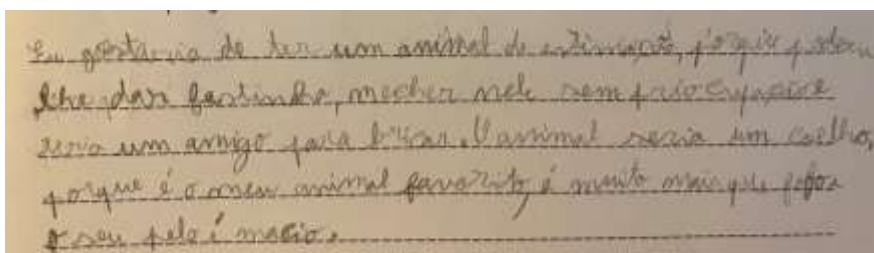 Eu gostaria de ter um animal de estimação, porque podeu
lhe dar festinha, mecher nele sem priocupação
seria um amigo para bricar. O animal seria um coelho,
porque é o meu animal favorito, é muito mais que fofo e
o seu pelo é macio.